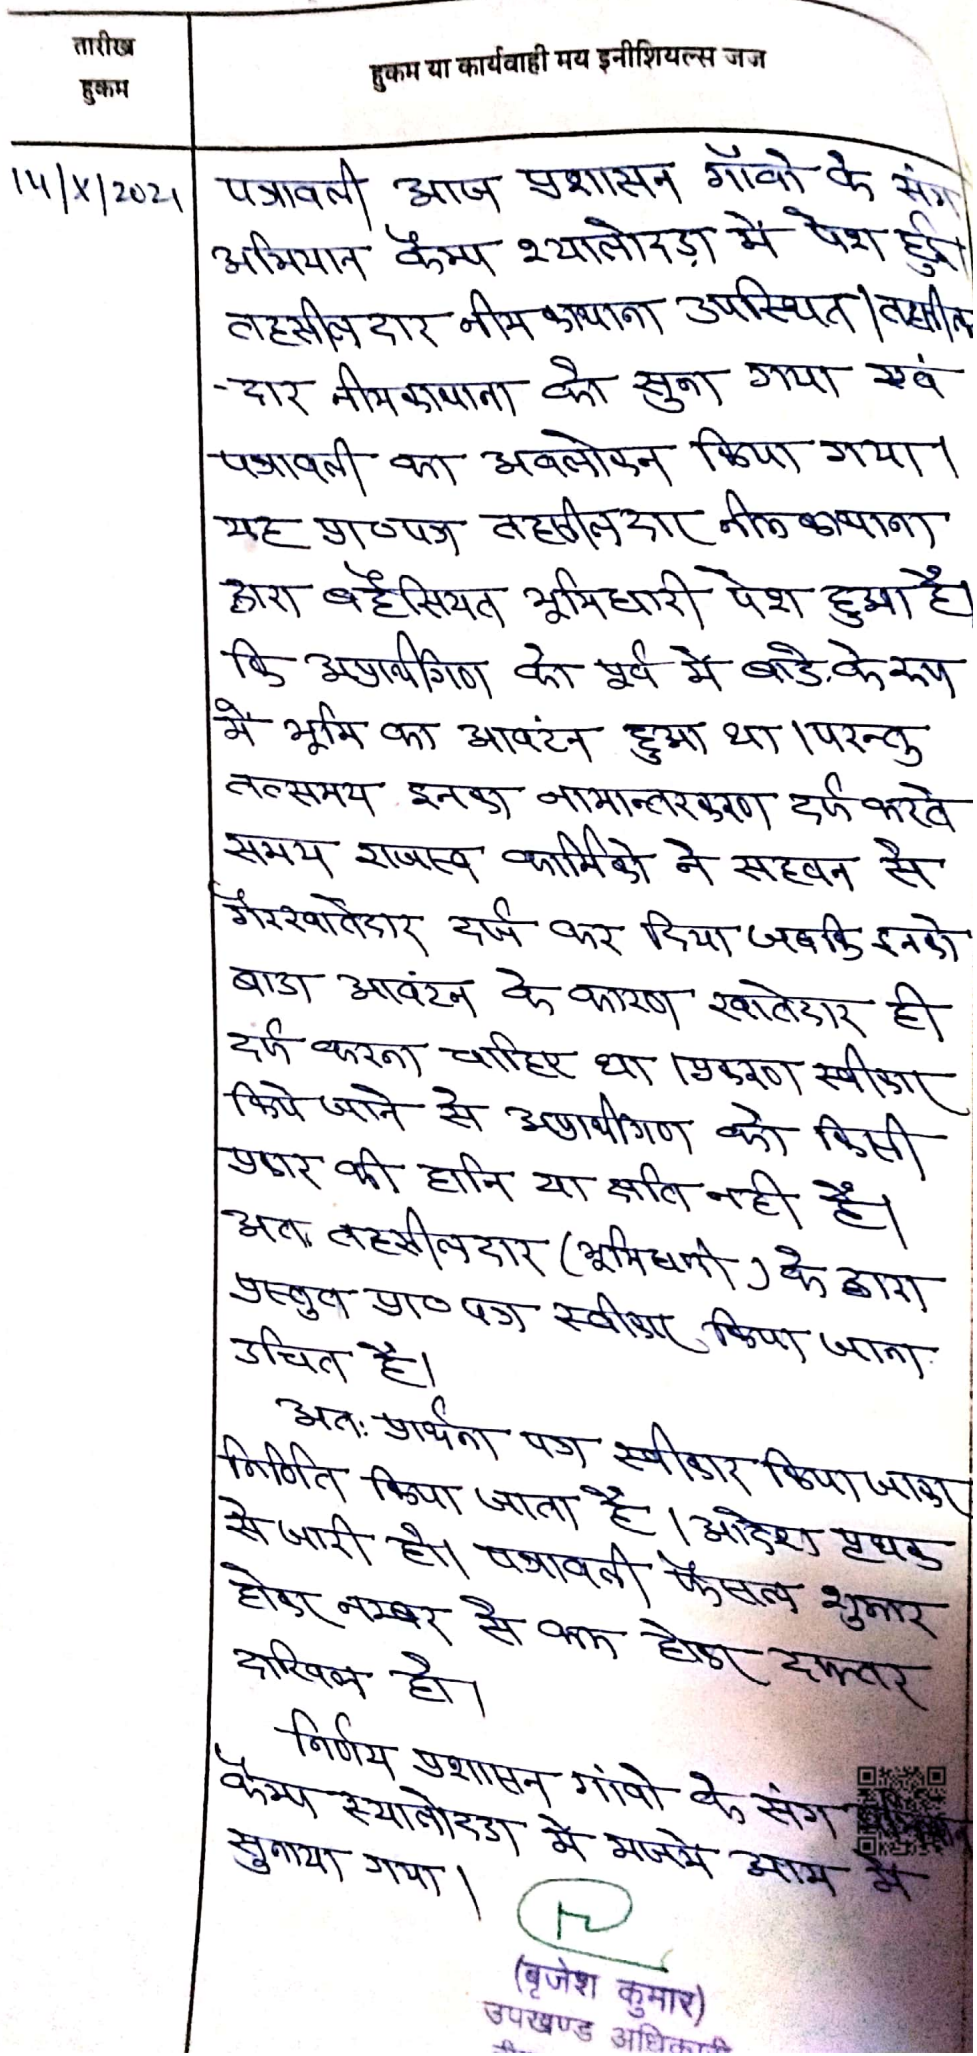 तारीख
हुकम
हुकम या कार्यवाही मय इनीशियल्स जज
14/X/2021
पत्रावली आज प्रशासन गाॅंवो के संग
अभियान कैम्प श्यालोदड़ा में पेश हुई।
तहसीलदार नीमकाथाना उपस्थित। तहसील
-दार नीमकाथाना को सुना गया एवं
पत्रावली का अवलोकन किया गया।
यह प्रा०पत्र तहसीलदार नीमकाथाना
द्वारा बहैसियत भूमिधारी पेश हुआ है।
कि अप्रार्थीगण को पूर्व में बाडे के रूप
में भूमि का आवंटन हुआ था। परन्तु
तत्समय इनका नामान्तरकरण दर्ज करते
समय राजस्व कार्मिको ने सहवन से
गैरखातेदार दर्ज कर दिया जबकि इनको
बाडा आवंटन के कारण खातेदार ही
दर्ज करना चाहिए था। प्रकरण स्वीकार
किये जाने से अप्रार्थीगण को किसी
प्रकार की हानि या क्षति नही है।
अतः तहसीलदार (भूमिधारी) के द्वारा
प्रस्तुत प्रा० पत्र स्वीकार किया जाना
उचित है।
अतः प्रार्थना पत्र स्वीकार किया जाकर
निर्णित किया जाता है। आदेश पृथक
से जारी हो। पत्रावली फैसल शुमार
होकर नम्बर से कम होकर दफ्तर
दाखिल हो।
निर्णय प्रशासन गांवो के संग
कैम्प स्यालोदडा में मजमे आम में
सुनाया गया।
(बृजेश कुमार)
उपखण्ड अधिकारी